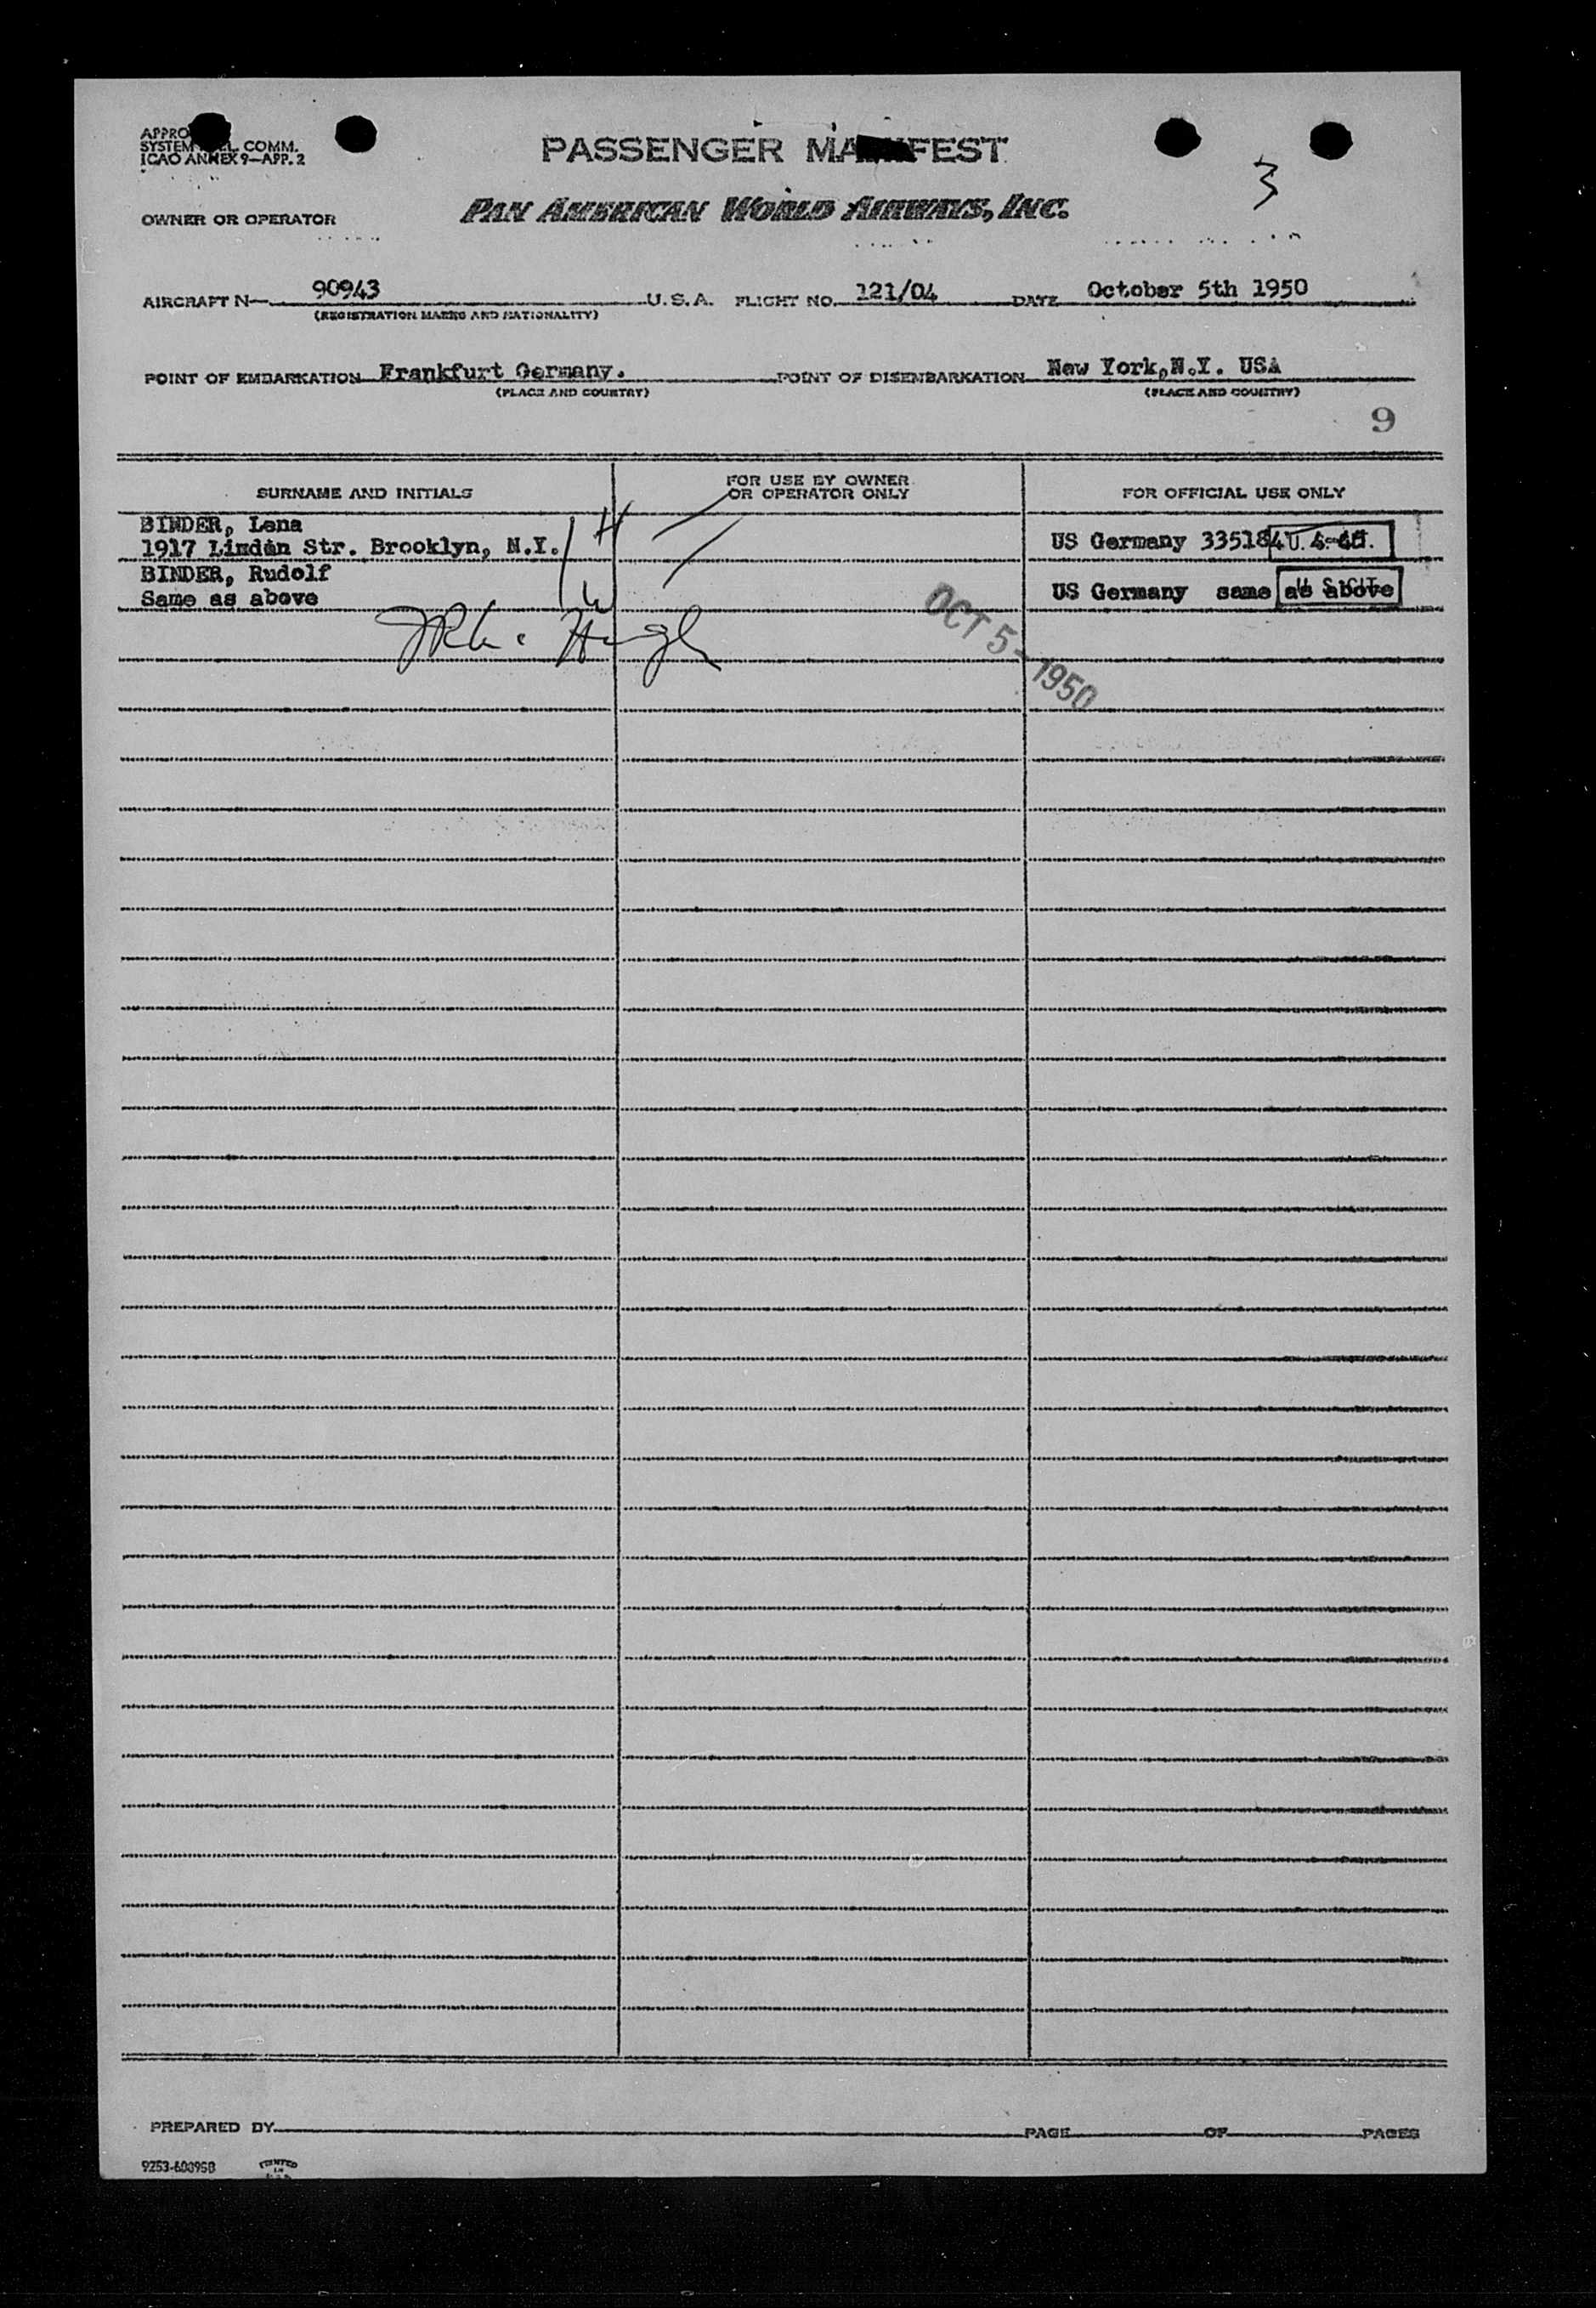 PASSENGER MANIFEST
ICAO ANNEX 9—APP. 2
3
OWNER OR OPERATOR PAN AMERICAN WORLD AIRWAYS, INC.
AIRCRAFT N— 90943 U. S. A. FLIGHT NO. 121/04 DATE October 5th 1950
(REGISTRATION MARKS AND NATIONALITY)
POINT OF EMBARKATION Frankfurt Germany. POINT OF DISEMBARKATION New York,N.Y. USA
(PLACE AND COUNTRY) (PLACE AND COUNTRY)
9
SURNAME AND INITIALS FOR USE BY OWNER OR OPERATOR ONLY FOR OFFICIAL USE ONLY
BINDER, Lena
1917 Linden Str. Brooklyn, N.Y. US Germany 335184
BINDER, Rudolf
Same as above US Germany same as above
OCT 5 - 1950
PREPARED BY PAGE OF PAGES
PRINTED IN